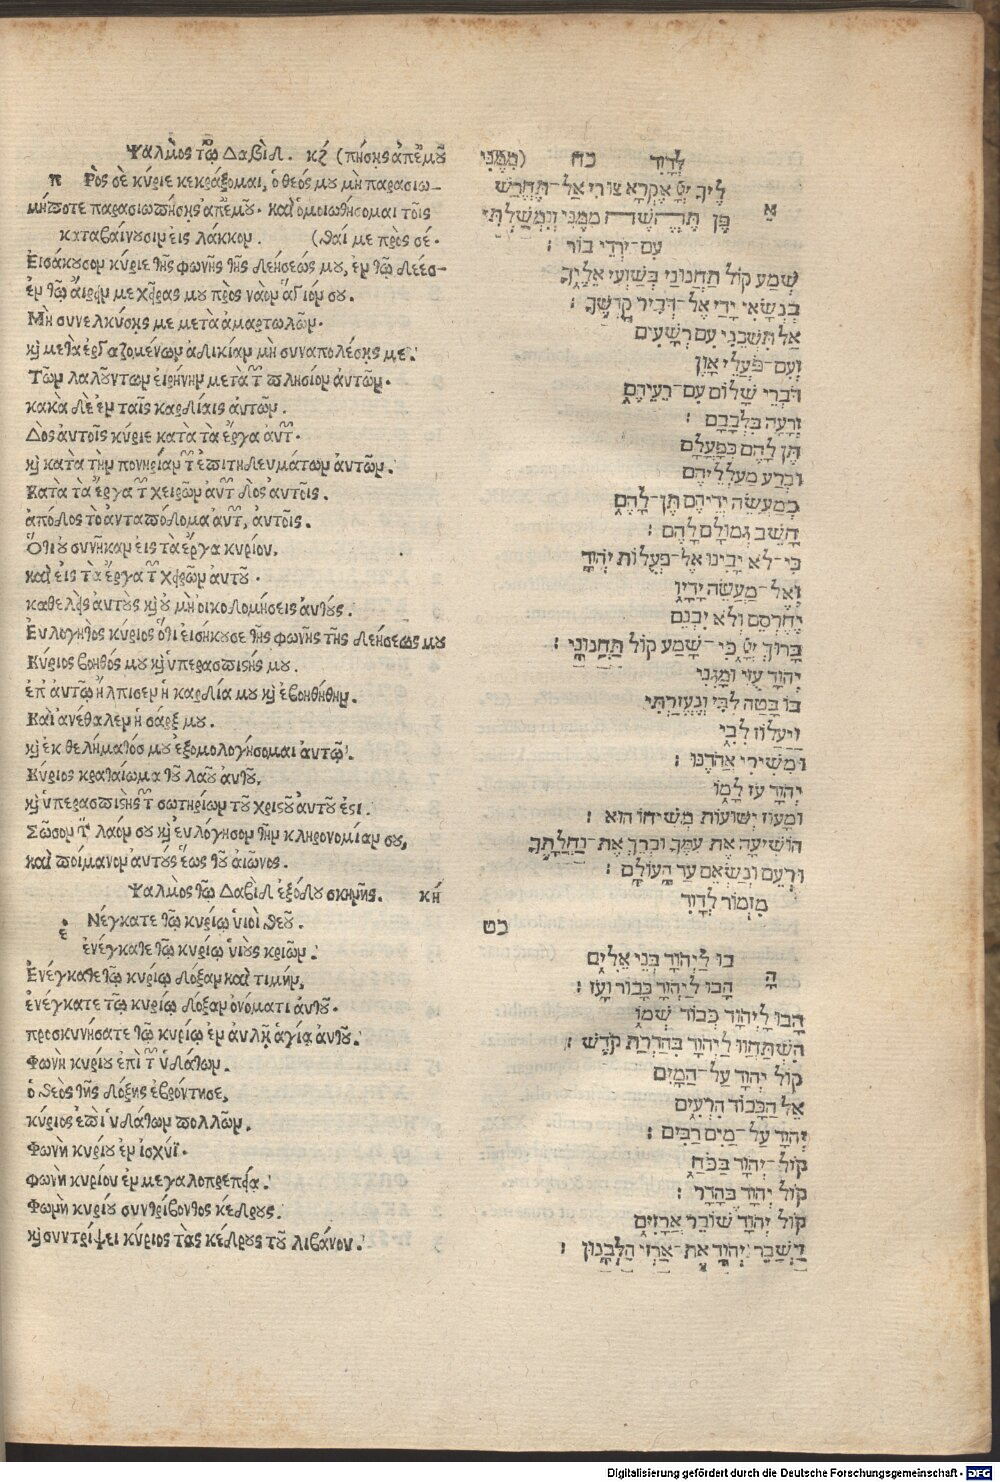 Ψαλμὸς τῷ Δαβὶδ. κζ (πήσῃς ἀπ' ἐμοῦ
πΡὸς σὲ κύριε κεκράξομαι, ὁ θεός μου μὴ παρασιω-
μήποτε παρασιωπήσῃς ἀπ' ἐμοῦ. καὶ ὁμοιωθήσομαι τοῖς
καταβαίνουσιν εἰς λάκκον. (θαί με πρὸς σέ.
Εἰσάκουσον κύριε τῆς φωνῆς τῆς δεήσεώς μου, ἐν τῷ δέεσ-
ἐν τῷ αἴρειν με χεῖρας μου πρὸς ναὸν ἅγιόν σου.
Μὴ συνελκύσῃς με μετὰ ἁμαρτωλῶν.
καὶ μετὰ ἐργαζομένων ἀδικίαν μὴ συναπολέσῃς με.
Τῶν λαλούντων εἰρήνην μετὰ τῶν πλησίον ἀυτῶν.
κακὰ δὲ ἐν ταῖς καρδίαις ἀυτῶν.
Δὸς ἀυτοῖς κύριε κατὰ τὰ ἔργα ἀυτῶν.
καὶ κατὰ τὴν πονηρίαν τῶν ἐπιτηδευμάτων ἀυτῶν.
Κατὰ τὰ ἔργα τῶν χειρῶν ἀυτῶν δὸς ἀυτοῖς.
ἀπόδος τὸ ἀνταπόδομα ἀυτῶν, ἀυτοῖς.
Ὅτι ὀυ συνῆκαν εἰς τὰ ἔργα κυρίου,
καὶ εἰς τὰ ἔργα τῶν χειρῶν ἀυτοῦ.
καθελεῖς ἀυτοὺς καὶ ὀυ μὴ οἰκοδομήσεις ἀυτούς.
Ἐυλογητὸς κύριος ὅτι εἰσήκουσε τῆς φωνῆς τῆς δεήσεώς μου
Κύριος βοηθός μου καὶ ὑπερασπιστής μου.
ἐπ' ἀυτῷ ἤλπισεν ἡ καρδία μου καὶ ἐβοηθήθην.
Καὶ ἀνέθαλεν ἡ σάρξ μου.
καὶ ἐκ θελήματός μου ἐξομολογήσομαι ἀυτῷ.
Κύριος κραταίωμα τοῦ λαοῦ ἀυτοῦ,
καὶ ὑπερασπιστὴς τῶν σωτηρίων τοῦ χριστοῦ ἀυτοῦ ἐστι.
Σῶσον τὸν λαόν σου καὶ ἐυλόγησον τὴν κληρονομίαν σου,
καὶ ποίμανον ἀυτοὺς ἕως τοῦ αἰῶνος.
Ψαλμὸς τῷ Δαβὶδ ἐξόδου σκηνῆς. κή
ἐΝέγκατε τῷ κυρίῳ ὑιοὶ θεοῦ.
ἐνέγκατε τῷ κυρίῳ ὑιοὺς κριῶν.
Ἐνέγκατε τῷ κυρίῳ δόξαν καὶ τιμήν,
ἐνέγκατε τῷ κυρίῳ δόξαν ὀνόματι ἀυτοῦ.
προσκυνήσατε τῷ κυρίῳ ἐν ἀυλῇ ἁγίᾳ ἀυτοῦ.
Φωνὴ κυρίου ἐπὶ τῶν ὑδάτων.
ὁ θεὸς τῆς δόξης ἐβρόντησε,
κύριος ἐπὶ ὑδάτων πολλῶν.
Φωνὴ κυρίου ἐν ἰσχύϊ.
φωνὴ κυρίου ἐν μεγαλοπρεπείᾳ.
Φωνὴ κυρίου συντρίβοντος κέδρους.
καὶ συντρίψει κύριος τὰς κέδρους τοῦ λιβάνου.
לְדָוִד כח (מִמֶּנִּי
אֵלֶיךָ יְיָ אֶקְרָא צוּרִי אַל־תֶּחֱרַשׁ
פֶּן תֶּחֱשֶׁה מִמֶּנִּי וְנִמְשַׁלְתִּי
עִם־יֹרְדֵי בוֹר׃
שְׁמַע קוֹל תַּחֲנוּנַי בְּשַׁוְּעִי אֵלֶיךָ
בְּנָשְׂאִי יָדַי אֶל־דְּבִיר קָדְשֶׁךָ׃
אַל תִּשְׁכֵּנִי עִם רְשָׁעִים
וְעִם־פֹּעֲלֵי אָוֶן
דֹּבְרֵי שָׁלוֹם עִם־רֵעֵיהֶם
וְרָעָה בִּלְבָבָם׃
תֶּן לָהֶם כְּפָעֳלָם
וּכְרֹעַ מַעַלְלֵיהֶם
כְּמַעֲשֵׂה יְדֵיהֶם תֵּן־לָהֶם
הָשֵׁב גְּמוּלָם לָהֶם׃
כִּי־לֹא יָבִינוּ אֶל־פְּעֻלּוֹת יְהוָֹד
וְאֶל־מַעֲשֵׂה יָדָיו
יֶהֶרְסֵם וְלֹא יִבְנֵם
בָּרוּךְ יְיָ כִּי־שָׁמַע קוֹל תַּחֲנוּנָי׃
יְהוָֹד עֻזִּי וּמָגִנִּי
בּוֹ בָּטַח לִבִּי וְנֶעֱזָרְתִּי
וַיַּעֲלוֹז לִבִּי
וּמִשִּׁירִי אֲהֹדֶנּוּ׃
יְהוָֹד עֹז לָמוֹ
וּמָעוֹז יְשׁוּעוֹת מְשִׁיחוֹ הוּא׃
הוֹשִׁיעָה אֶת עַמֶּךָ וּבָרֵךְ אֶת־נַחֲלָתֶךָ
וּרְעֵם וְנַשְּׂאֵם עַד הָעוֹלָם׃
מִזְמוֹר לְדָוִד
כט
הָבוּ לַיְהוָֹד בְּנֵי אֵלִים
הָבוּ לַיְהוָֹד כָּבוֹד וָעֹז׃
הָבוּ לַיְהוָֹד כְּבוֹד שְׁמוֹ
הִשְׁתַּחֲווּ לַיְהוָֹד בְּהַדְרַת קֹדֶשׁ׃
קוֹל יְהוָֹד עַל־הַמָּיִם
אֵל הַכָּבוֹד הִרְעִים
יְהוָֹד עַל־מַיִם רַבִּים׃
קוֹל־יְהוָֹד בַּכֹּחַ
קוֹל יְהוָֹד בֶּהָדָר׃
קוֹל יְהוָֹד שׁוֹבֵר אֲרָזִים
וַיְשַׁבֵּר יְהוָֹד אֶת־אַרְזֵי הַלְּבָנוֹן׃
Digitalisierung gefördert durch die Deutsche Forschungsgemeinschaft - DFG